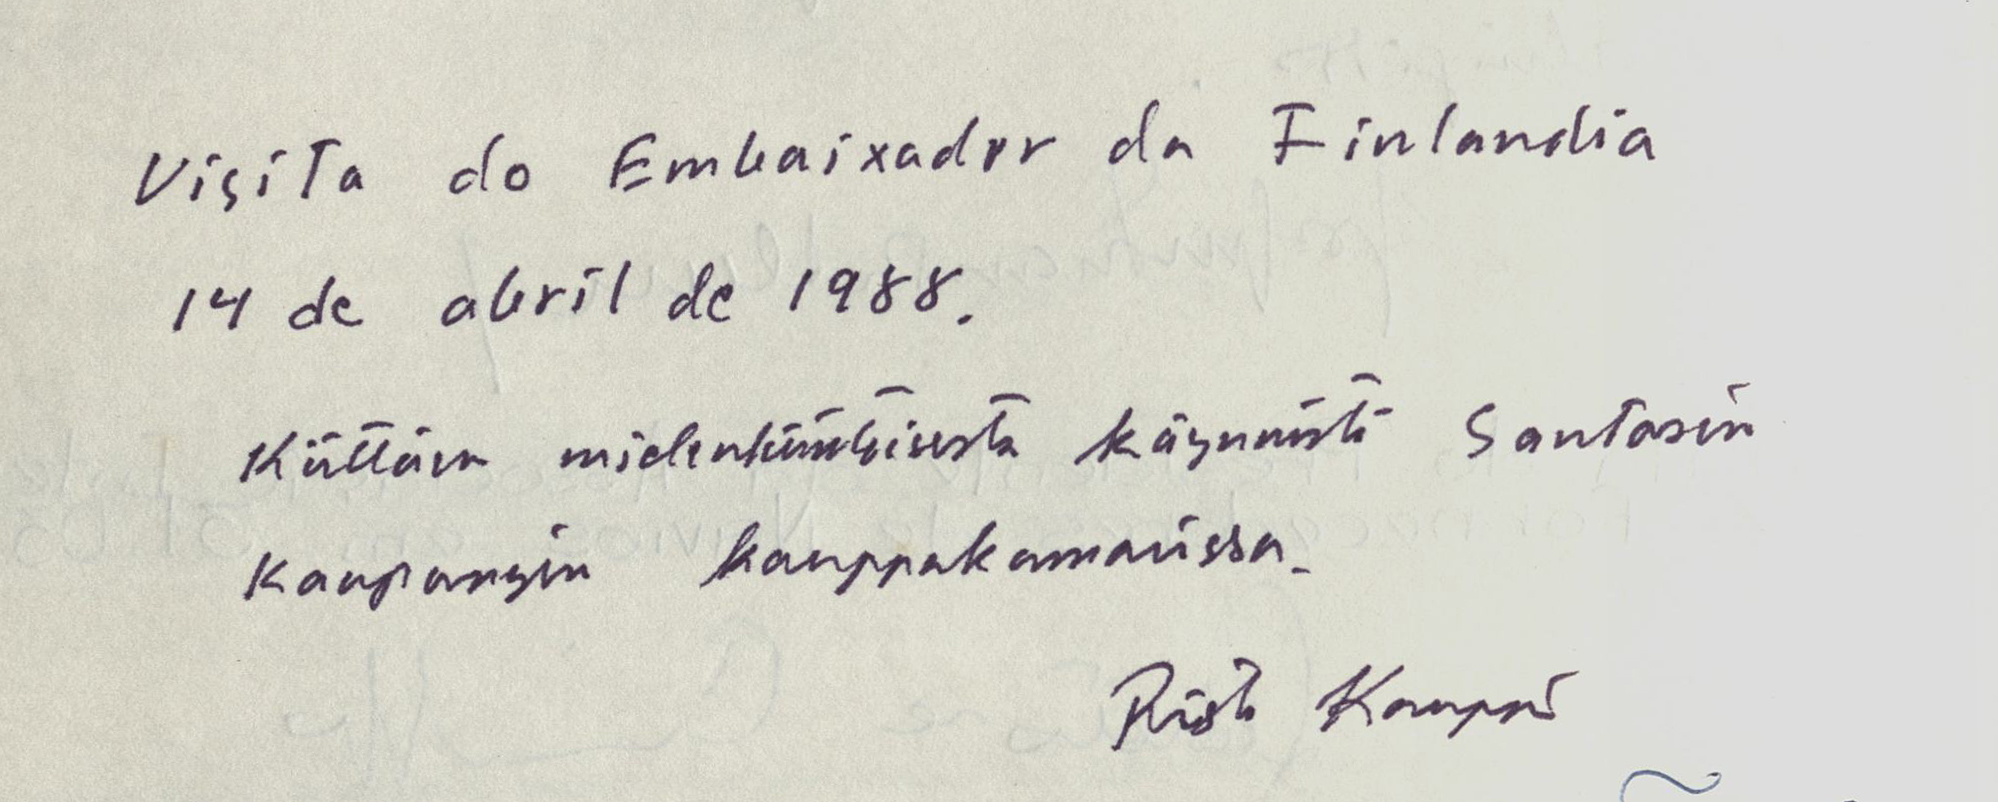 Visita do Embaixador da Finlandia
14 de abril de 1988.
Kiittäen mielenkiintoisesta käynnistä Santosin
Kaupungin kauppakamarissa.
Risto Kauppi